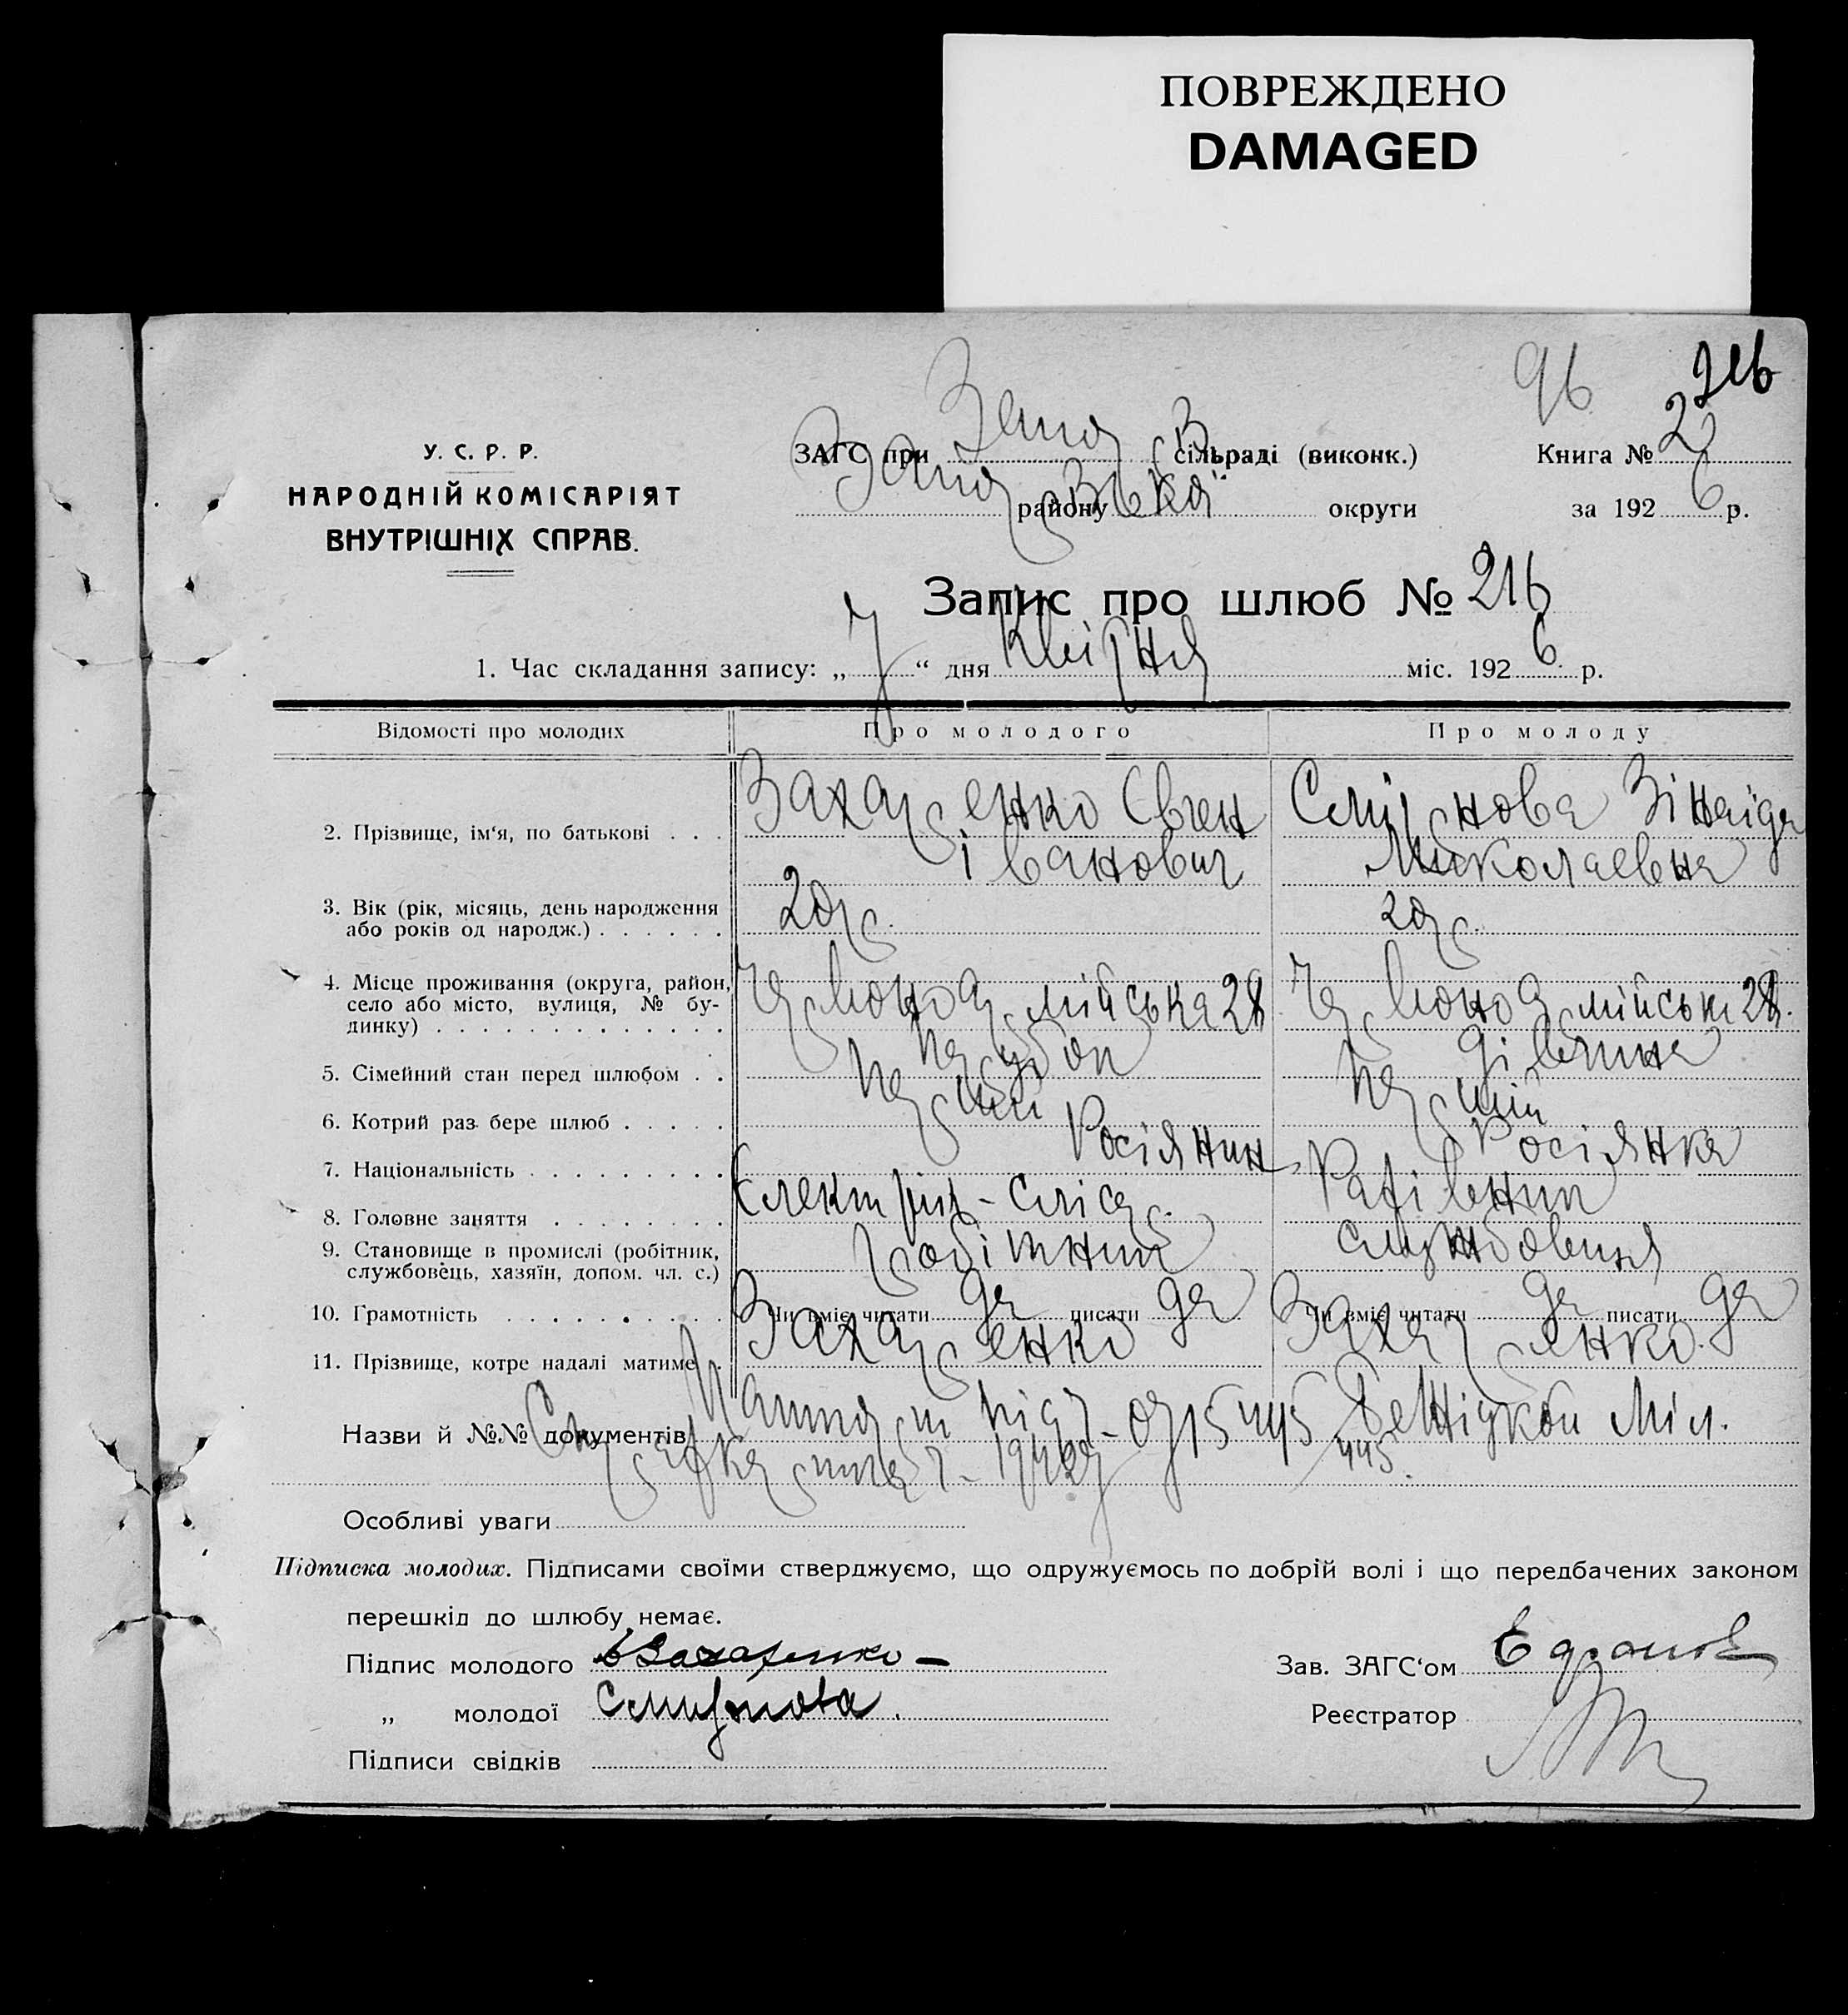 ПОВРЕЖДЕНО
DAMAGED
96
216
У. С. Р. Р.
НАРОДНІЙ КОМІСАРІЯТ
ВНУТРІШНІХ СПРАВ.
ЗАГС при сільраді (виконк.) Книга № 2
району округи за 192 6 р.
Запис про шлюб № 216
1. Час складання запису: „ 7 “ дня Квітня міс. 192 6 р.
Відомості про молодих Про молодого Про молоду
2. Прізвище, ім‘я, по батькові . . . Захаренко Євген Смірнова Зінаіда
Іванович Миколаевна
3. Вік (рік, місяць, день народження
або років од народж.) . . . . . . 20 р. 20 р.
4. Місце проживання (округа, район,
село або місто, вулиця, № бу-
динку) . . . . . . . . . . . . . Червоноармійська 28 Червоноармійськ 28.
5. Сімейний стан перед шлюбом . . парубок дівчина
6. Котрий раз бере шлюб . . . . . перший перший
7. Національність . . . . . . . . . Росіянин Росіянка
8. Головне заняття . . . . . . . . Електрик-слюсар.
9. Становище в промислі (робітник,
службовець, хазяїн, допом. чл. с.) робітник службовиця
10. Грамотність . . . . . . . . . . Чи вміє читати да писати да Чи вміє читати да писати да
11. Прізвище, котре надалі матиме . Захаренко Захаренко.
Назви й №№ документів Паспорт під ч. Міл.
Особливі уваги
Підписка молодих. Підписами своїми стверджуємо, що одружуємось по добрій волі і що передбачених законом
перешкід до шлюбу немає.
Підпис молодого Захаренко – Зав. ЗАГС‘ом
„ молодої Смирнова. Реєстратор
Підписи свідків